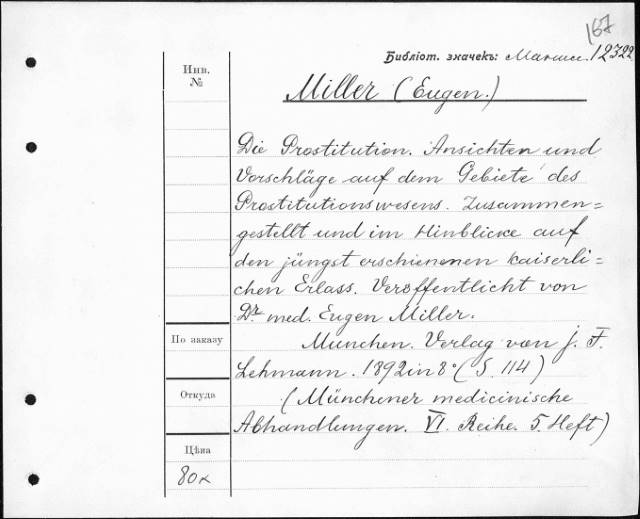 167
Библіот. значекъ: 12322
Инв.
№
Miller (Eugen.)
Die Prostitution. Ansichten und
Vorschläge auf dem Gebiete des
Prostitutionswesens. Zusammen=
gestellt und im Hinblicke auf
den jüngst erschienenen kaiserli=
chen Erlass. Veröffentlicht von
Dr. med. Eugen Miller.
По заказу
Munchen. Verlag von J. F.
Lehmann. 1892 in 8° (S. 114)
Откуда
(Münchener medicinische
Abhandlungen. VI. Reihe. 5. Heft)
Цѣна
80к